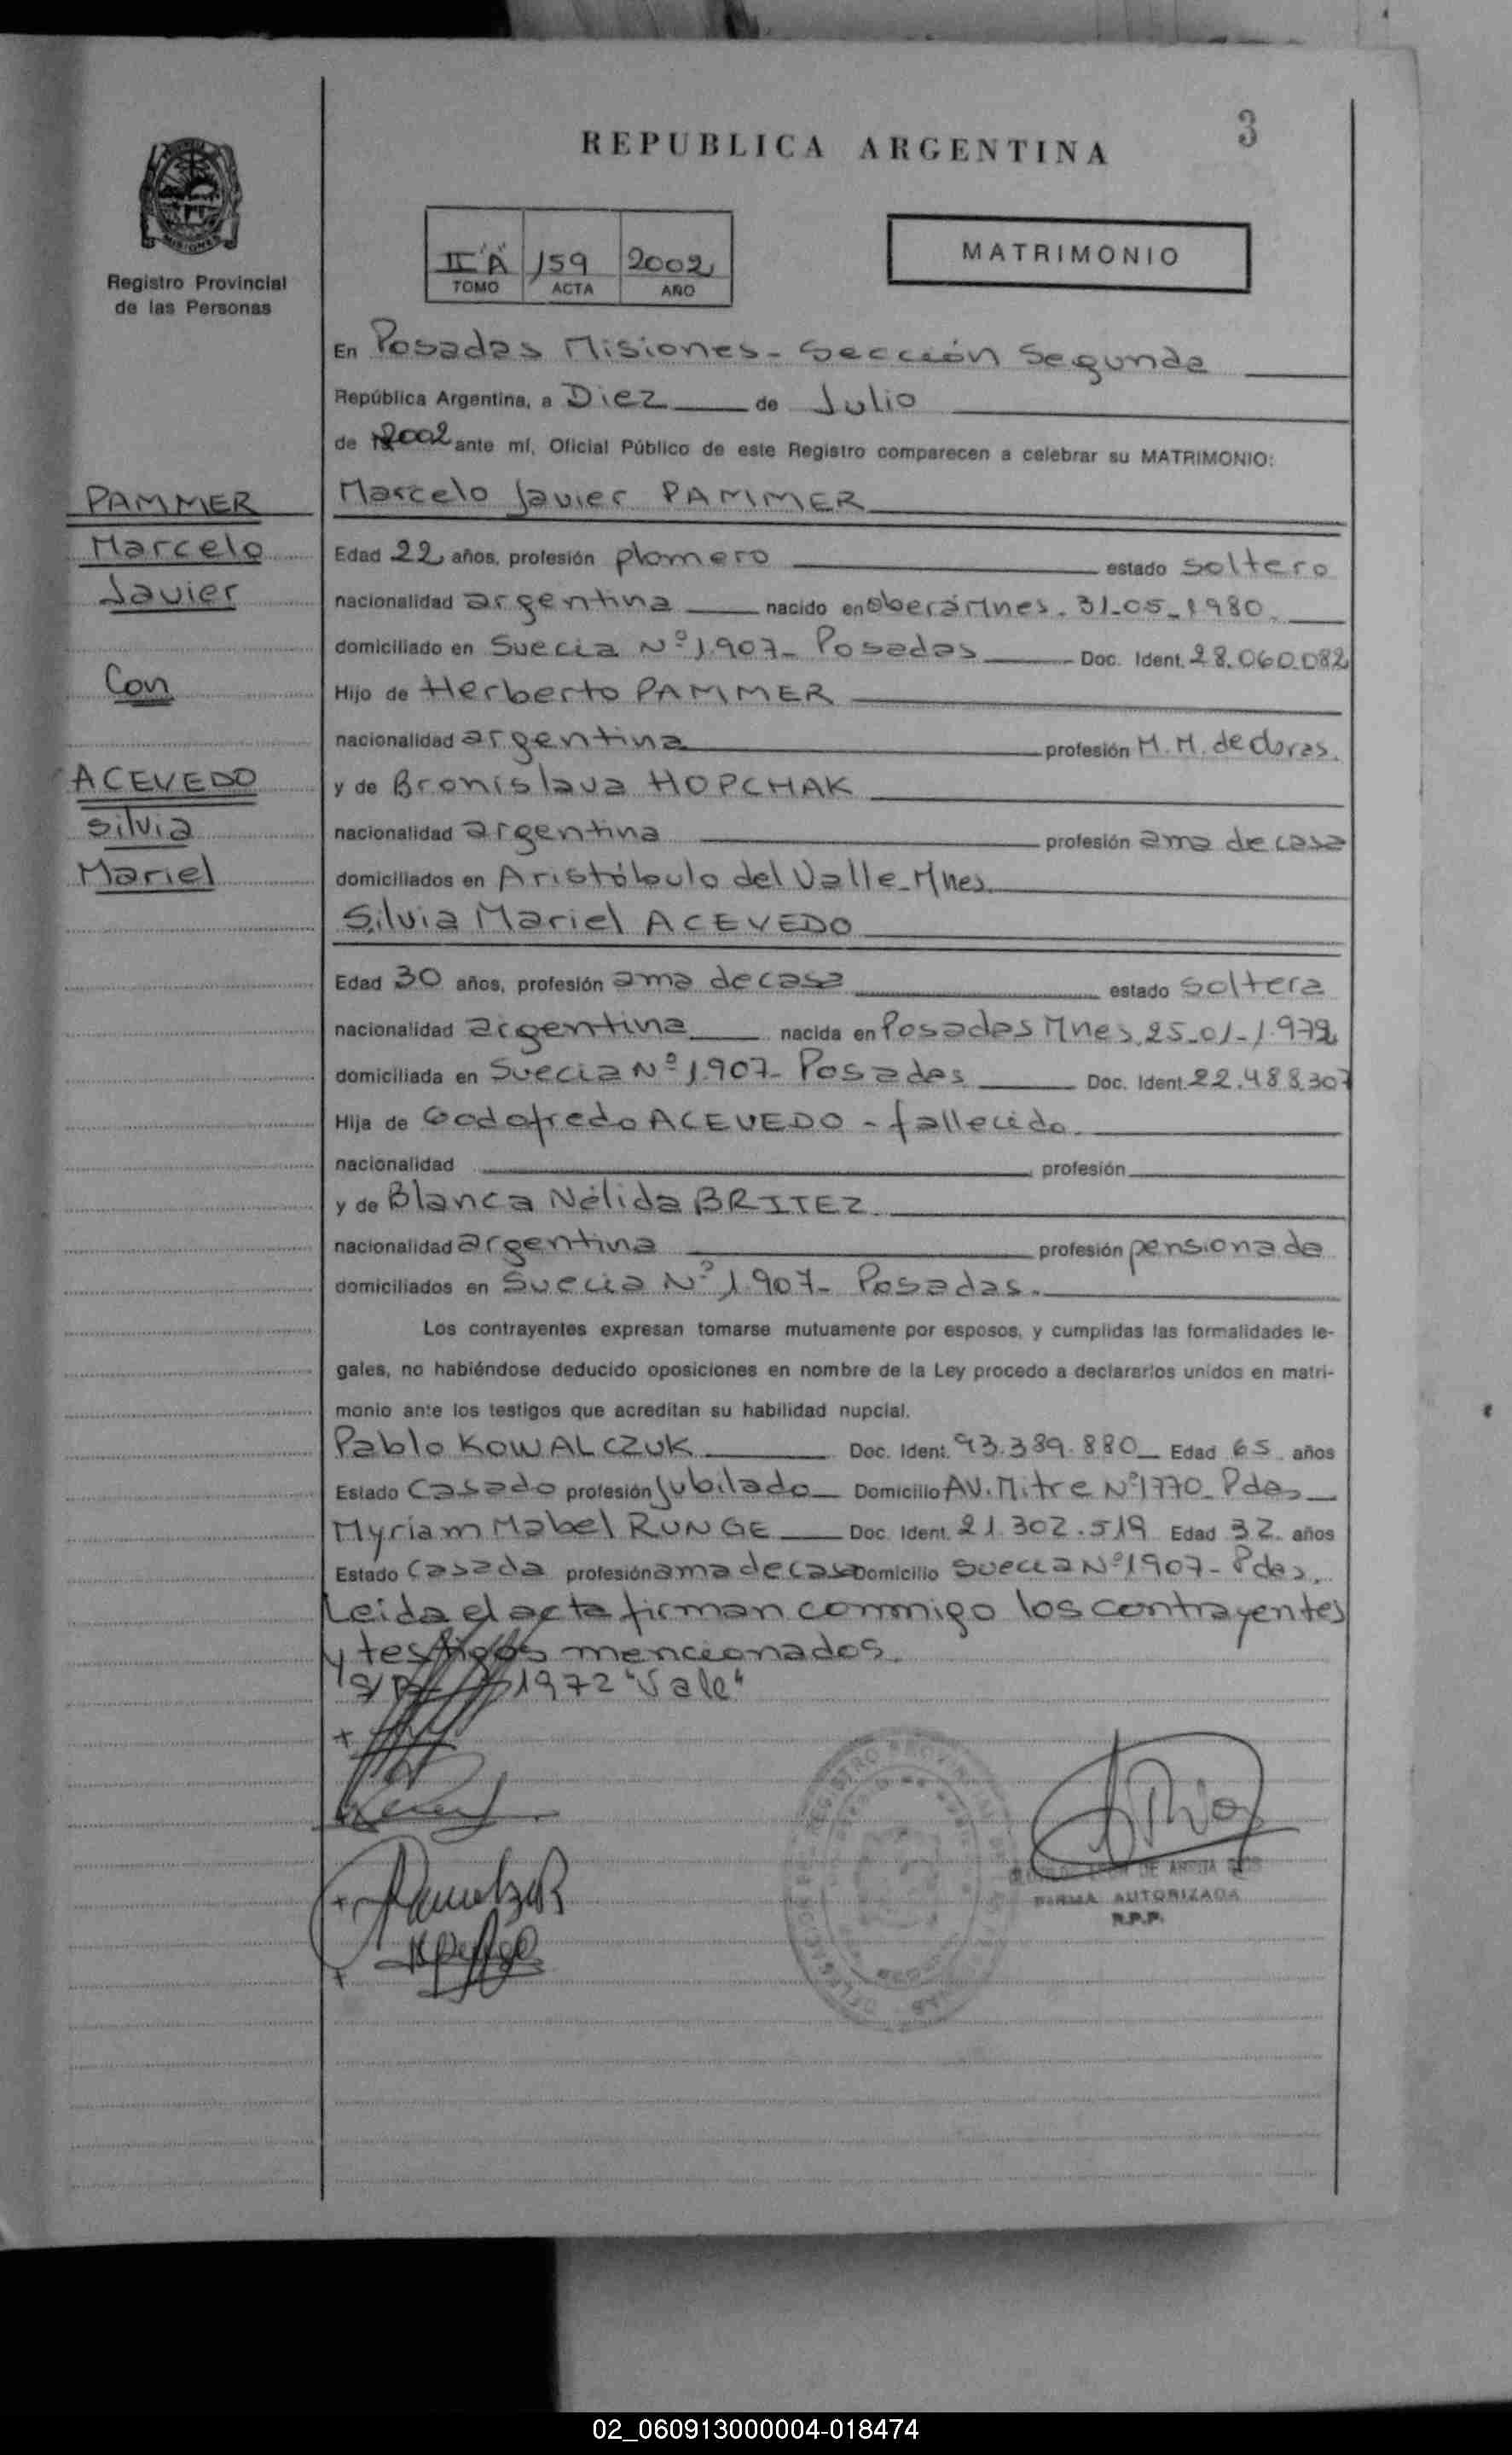 REPUBLICA ARGENTINA
3
MISIONES
Registro Provincial
de las Personas
II "A" 159 2002
TOMO ACTA AÑO
MATRIMONIO
En Posadas Misiones - Sección Segunda
República Argentina, a Diez de Julio
de 2002 ante mí, Oficial Público de este Registro comparecen a celebrar su MATRIMONIO:
PAMMER
Marcelo
Javier
Con
ACEVEDO
Silvia
Mariel
Marcelo Javier PAMMER
Edad 22 años, profesión plomero estado soltero
nacionalidad argentina nacido en Oberá Mnes. 31-05-1980.
domiciliado en Suecia Nº 1.907- Posadas Doc. Ident. 28.060.082
Hijo de Herberto PAMMER
nacionalidad argentina profesión M. M. de
y de Bronislava HOPCHAK
nacionalidad argentina profesión ama de casa
domiciliados en Aristóbulo del Valle-Mnes.
Silvia Mariel ACEVEDO
Edad 30 años, profesión ama de casa estado soltera
nacionalidad argentina nacida en Posadas Mnes. 25-01-1.972
domiciliada en Suecia Nº 1.907- Posadas Doc. Ident. 22.488.307
Hija de Godofredo ACEVEDO - fallecido.
nacionalidad profesión
y de Blanca Nélida BRITEZ.
nacionalidad argentina profesión pensionada
domiciliados en Suecia Nº 1.907- Posadas.
Los contrayentes expresan tomarse mutuamente por esposos, y cumplidas las formalidades le-
gales, no habiéndose deducido oposiciones en nombre de la Ley procedo a declararlos unidos en matri-
monio ante los testigos que acreditan su habilidad nupcial.
Pablo KOWALCZUK Doc. Ident. 93.389.880 Edad 65 años
Estado Casado profesión Jubilado Domicilio AV. Mitre Nº 1770- Pdas
Myriam Mabel RUNGE Doc. Ident. 21.302.519 Edad 32 años
Estado Casada profesión ama de casa Domicilio Suecia Nº 1907- Pdas.
Leida el acta firman conmigo los contrayentes
y testigos mencionados.
1972 "Vale"
REGISTRO PROVINCIAL
FIRMA AUTORIZADA
R.P.P.
02_060913000004-018474